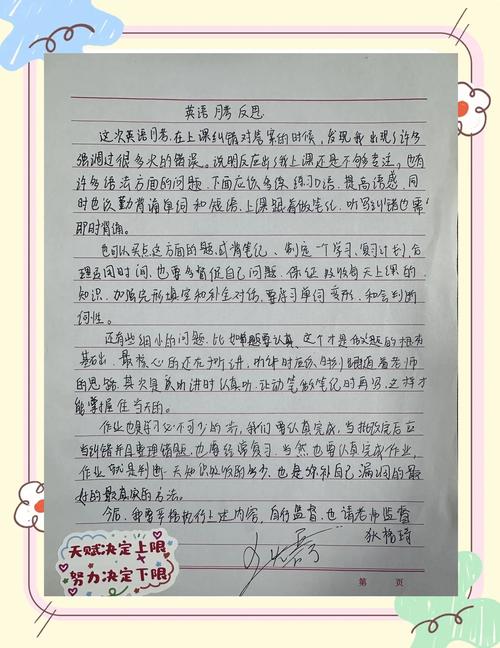 英语月考反思
这次英语月考，在上课纠错对答案的时候，发现我出现了许多
强调过很多次的错误。说明反应出了我上课还是不够专注，也有
许多语法方面的问题，下面应该多练习口语，提高语感，同
时也该勤背诵单词和短语，上课跟着做笔记，听写纠错也需
即时背诵。
也可以买点这方面的题，或背笔记、制定一个学习、复习计划，合
理运用时间，也要多督促自己问题，保证吸收每天上课的
知识，加强完形填空和补全对话，要练习单词变形，和会判断
词性。
还有些细小的问题，比如审题要认真，这个才是做题的根
基，最核心的还在于听讲，听讲时应跟着老师
的思路，其次是听讲时认真听，让动笔做笔记时再写，这样才
能掌握住当天的。
作业也是学习必不可少的，我们要认真完成，当批改完后应
当纠错并且整理错题，也要经常复习，当然也要认真完成作业，
作业就是判断一天知识吸收的多少，也是弥补自己漏洞的最
好的最真实的方法。
今后，我要严格执行上述内容，自行监督，也请老师监督
第 页
天赋决定上限
努力决定下限